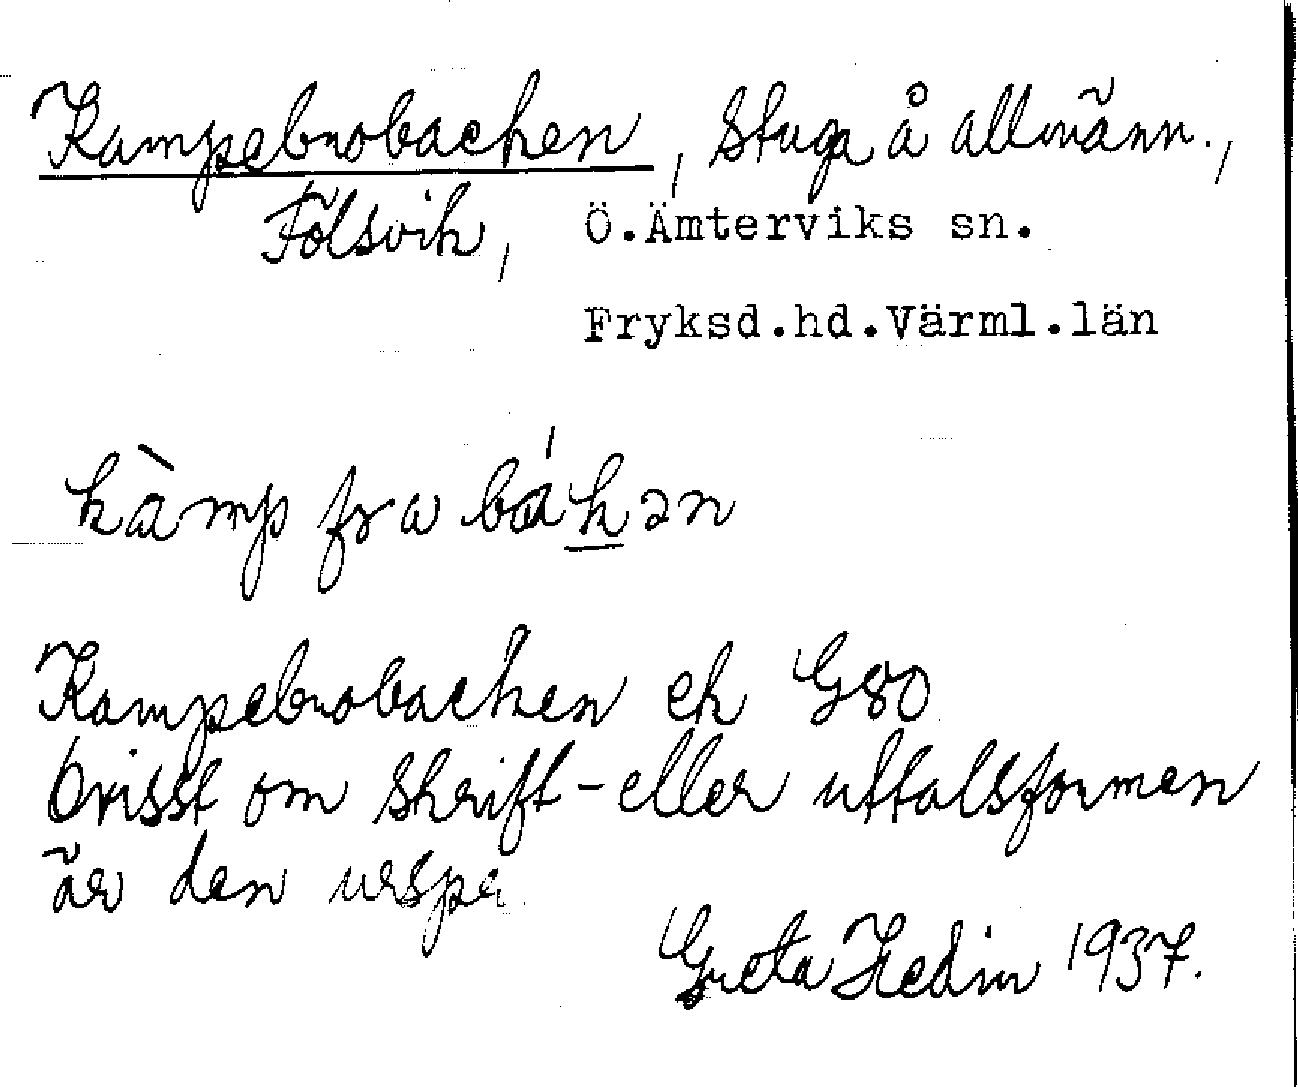 Kampebrobacken, stuga å allmänn.,
Fölsvik, Ö.Ämterviks sn.
Fryksd.hd.Värml.län
kàmp fra bákən
Kampebrobacken ek G80
Ovisst om skrift- eller uttalsformen
är den urspr.
Greta Hedin 1937.